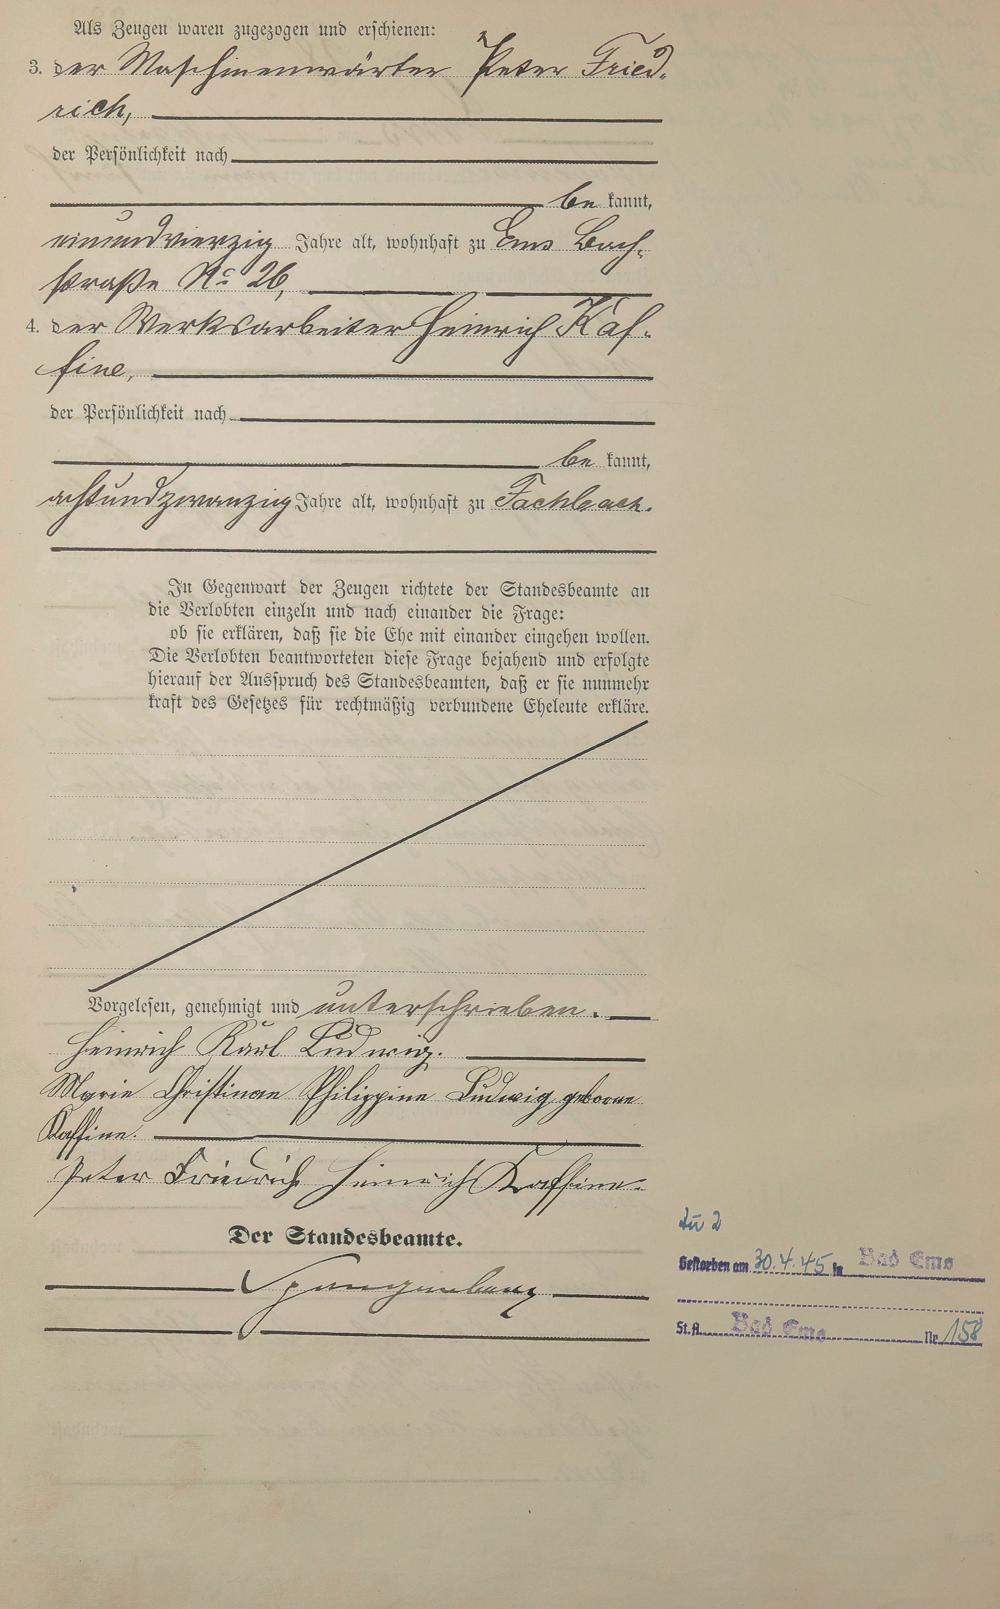 Als Zeugen waren zugezogen und erschienen:
3. der Maschinenwärter Peter Fried-
rich,
der Persönlichkeit nach
be kannt,
einundvierzig Jahre alt, wohnhaft zu Ems Bach-
straße No 26,
4. der Werksarbeiter Heinrich Kaf-
fine,
der Persönlichkeit nach
be kannt,
achtundzwanzig Jahre alt, wohnhaft zu Fachbach.
In Gegenwart der Zeugen richtete der Standesbeamte an
die Verlobten einzeln und nach einander die Frage:
ob sie erklären, daß sie die Ehe mit einander eingehen wollen.
Die Verlobten beantworteten diese Frage bejahend und erfolgte
hierauf der Ausspruch des Standesbeamten, daß er sie nunmehr
kraft des Gesetzes für rechtmäßig verbundene Eheleute erkläre.
Vorgelesen, genehmigt und unterschrieben.
Heinrich Karl Ludwig.
Marie Christinan Philippine Ludwig geborne
Kaffine.
Peter Friedrich Heinrich Kaffine.
Der Standesbeamte.
Spangenberg
Zu 2
Gestorben am 30.4.45 in Bad Ems
St.A. Bad Ems Nr 158